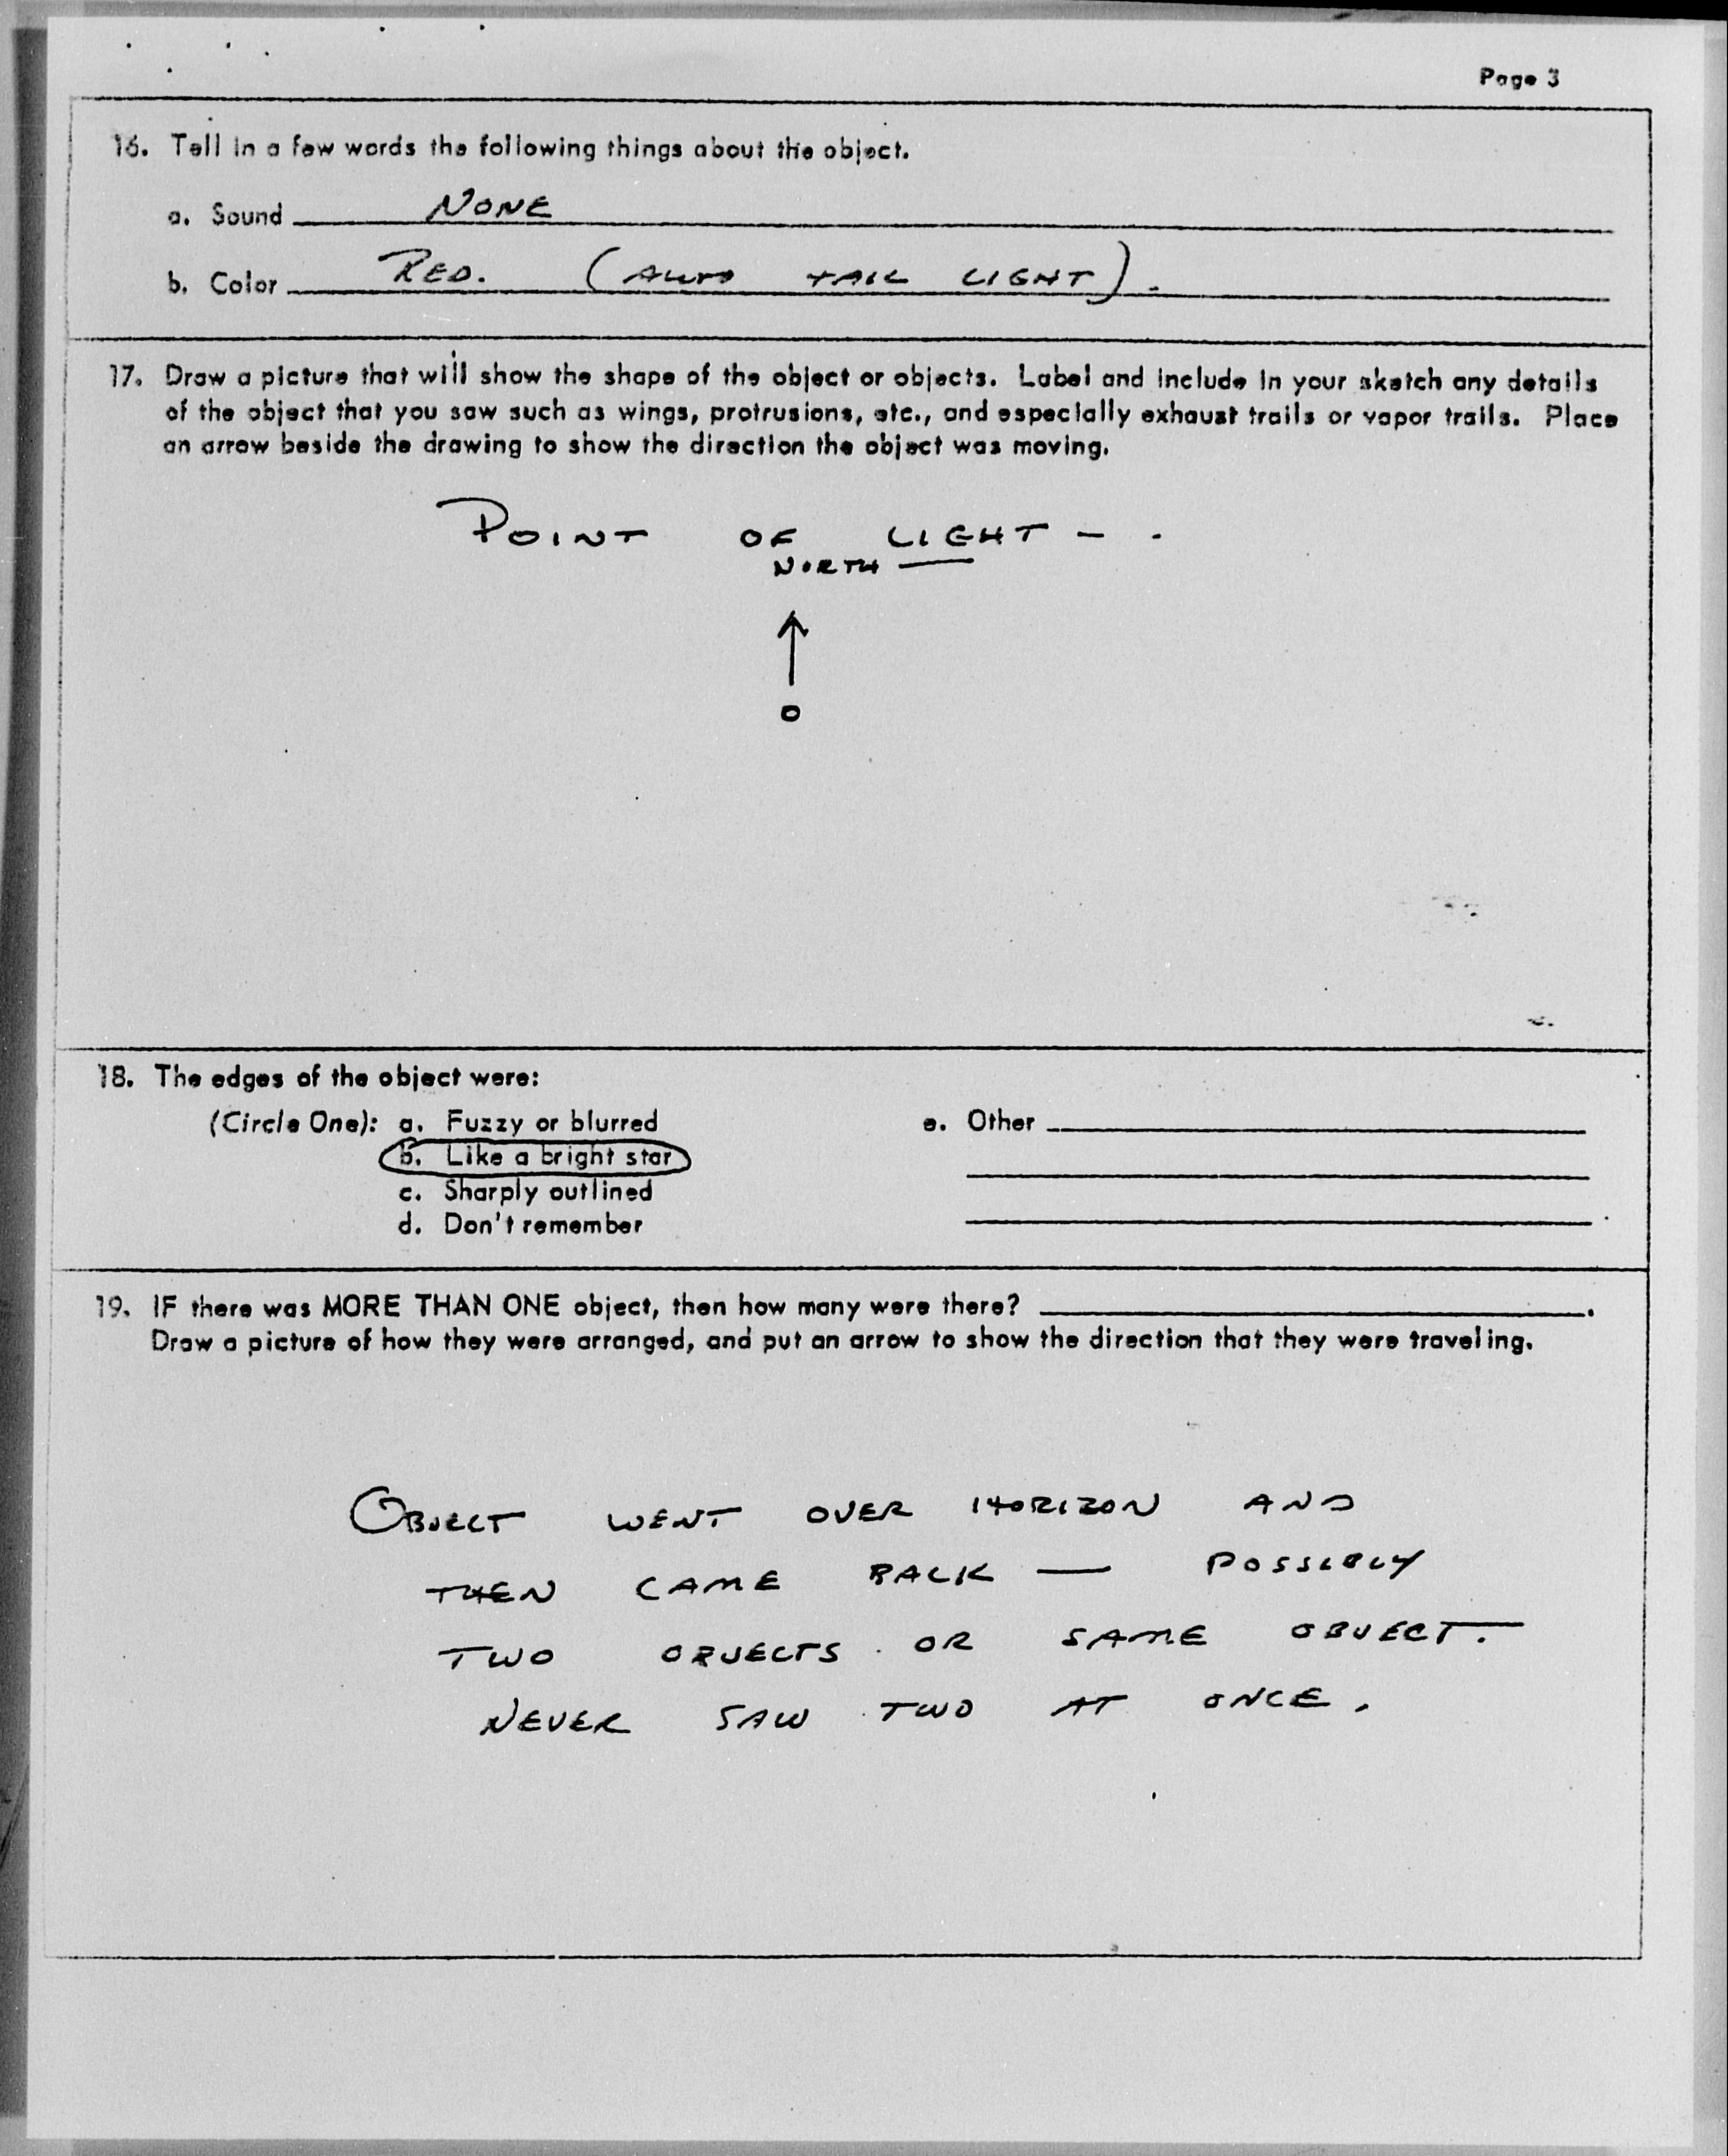 Page 3
16. Tell in a few words the following things about the object.
a. Sound NONE
b. Color RED. (AUTO TAIL LIGHT).
17. Draw a picture that will show the shape of the object or objects. Label and include in your sketch any details
of the object that you saw such as wings, protrusions, etc., and especially exhaust trails or vapor trails. Place
an arrow beside the drawing to show the direction the object was moving.
POINT OF LIGHT - .
NORTH —
18. The edges of the object were:
(Circle One): a. Fuzzy or blurred e. Other
b. Like a bright star
c. Sharply outlined
d. Don't remember
19. IF there was MORE THAN ONE object, then how many were there? .
Draw a picture of how they were arranged, and put an arrow to show the direction that they were traveling.
OBJECT WENT OVER HORIZON AND
THEN CAME BACK — POSSIBLY
TWO OBJECTS OR SAME OBJECT.
NEVER SAW TWO AT ONCE.